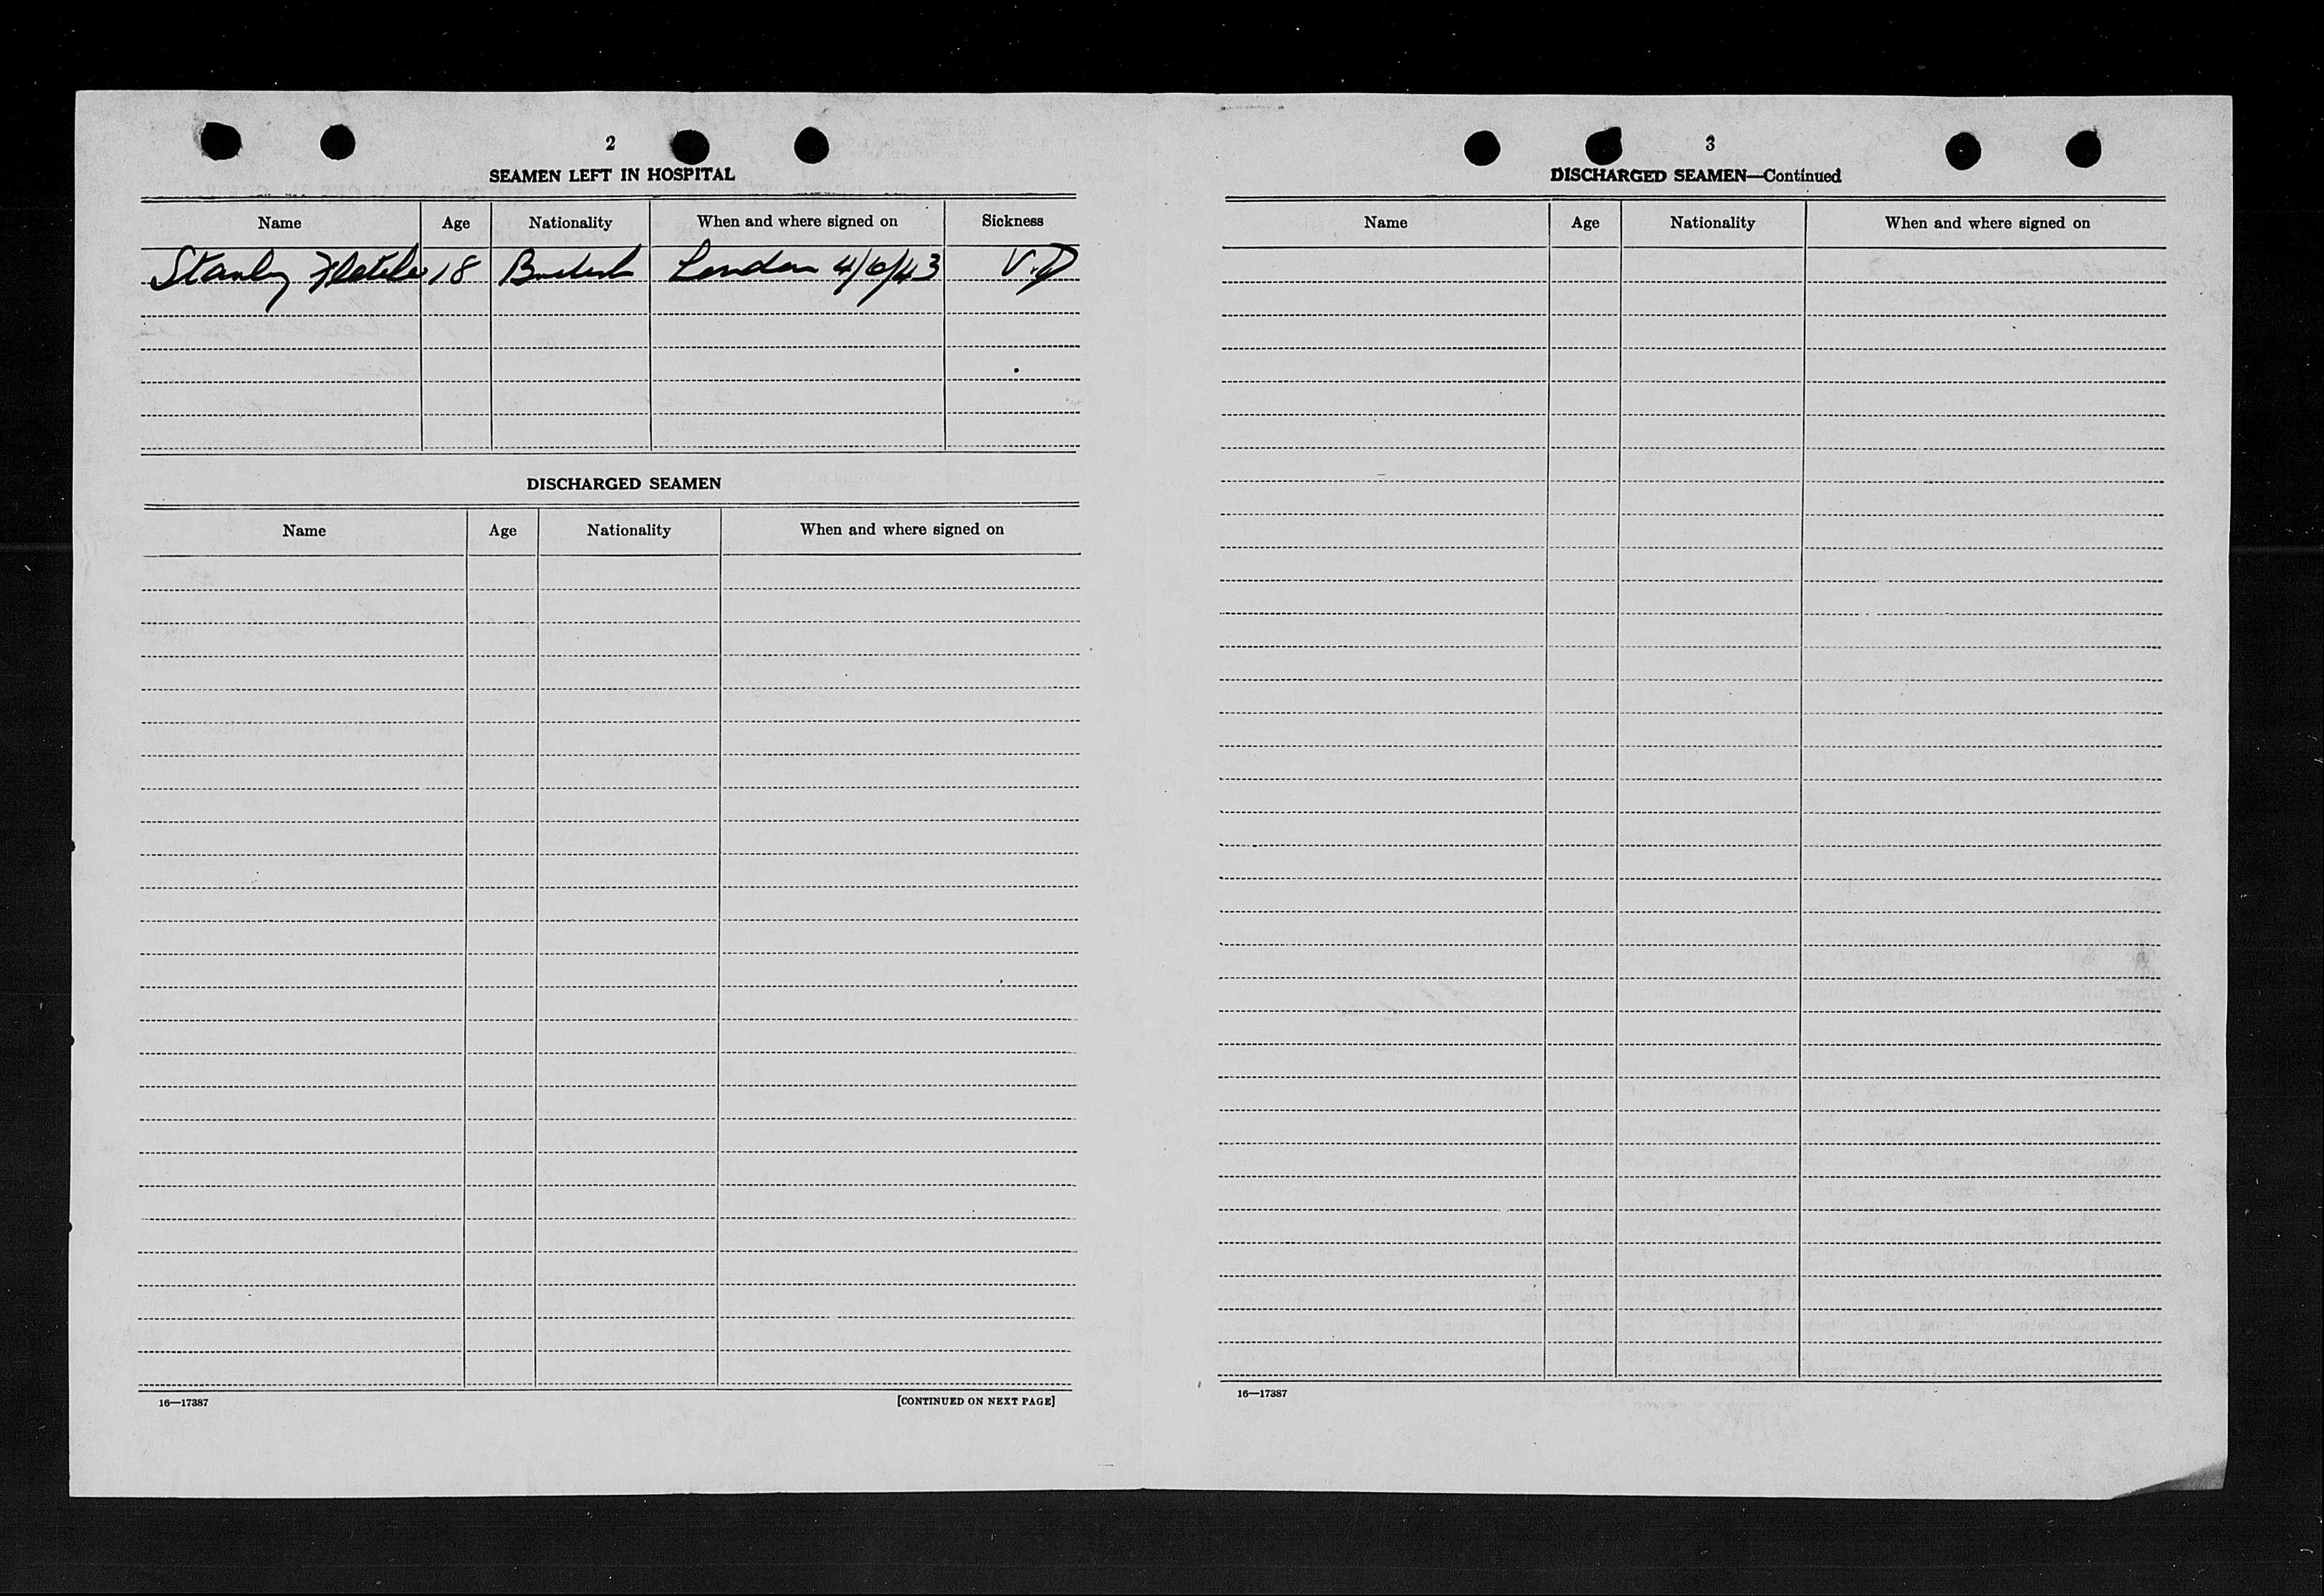 2
SEAMEN LEFT IN HOSPITAL
Name Age Nationality When and where signed on Sickness
Stanley Fletcher 18 British London 4/6/43 V.D
DISCHARGED SEAMEN
Name Age Nationality When and where signed on
16—17387 [CONTINUED ON NEXT PAGE]
3
DISCHARGED SEAMEN—Continued
Name Age Nationality When and where signed on
16—17387